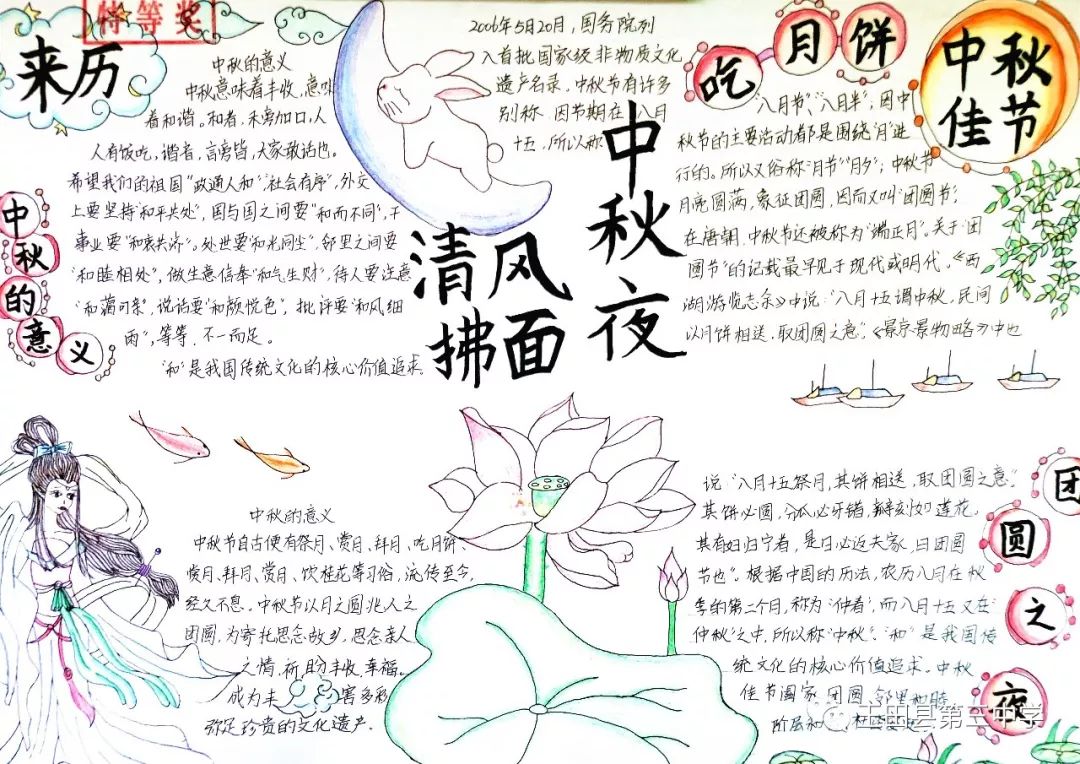 特等奖
来历
中秋的意义
中秋意味着丰收,意味
着和谐。和者,禾旁加口,人
人有饭吃,谐者,言旁皆,大家敢话也。
希望我们的祖国“政通人和”,“社会有序”,外交
上要坚持“和平共处”,国与国之间要“和而不同”,干
事业要“和衷共济”。处世要“和光同尘”,邻里之间要
“和睦相处”,做生意信奉“和气生财”,待人要注意
“和蔼可亲”,说话要“和颜悦色”,批评要“和风细
雨”,等等,不一而足。
“和”是我国传统文化的核心价值追求。
中秋的意义
2006年5月20日,国务院列
入首批国家级非物质文化
遗产名录。中秋节有许多
别称,因节期在八月
十五,所以称
中秋夜
清风
拂面
吃月饼
中秋
佳节
“八月节”、“八月半”;因中
秋节的主要活动都是围绕“月”进
行的。所以又俗称“月节”“月夕”;中秋节
月亮圆满,象征团圆,因而又叫“团圆节”;
在唐朝,中秋节还被称为“端正月”。关于“团
圆节”的记载最早见于现代或明代。《西
湖游览志余》中说:“八月十五谓中秋,民间
以月饼相送,取团圆之意”。《景京景物略》中也
中秋的意义
中秋节自古便有祭月、赏月、拜月、吃月饼、
拜月、赏月、饮桂花等习俗,流传至今,
经久不息。中秋节以月之圆兆人之
团圆,为寄托思念故乡,思念亲人
之情,祈盼丰收、幸福。
成为丰富多彩
弥足珍贵的文化遗产。
说“八月十五祭月,其饼相送,取团圆之意”。
其饼必圆,分瓜必牙错,瓣刻如莲花,
其有妇归宁者,是日必返夫家,曰团圆
节也”。根据中国的历法,农历八月在秋
季的第二个月,称为“仲春”,而八月十五又在“
仲秋”之中,所以称“中秋”。“和”是我国传
统文化的核心价值追求。中秋
佳节阖家团圆,邻里和睦,
阶层和
团圆之夜
县第三中学